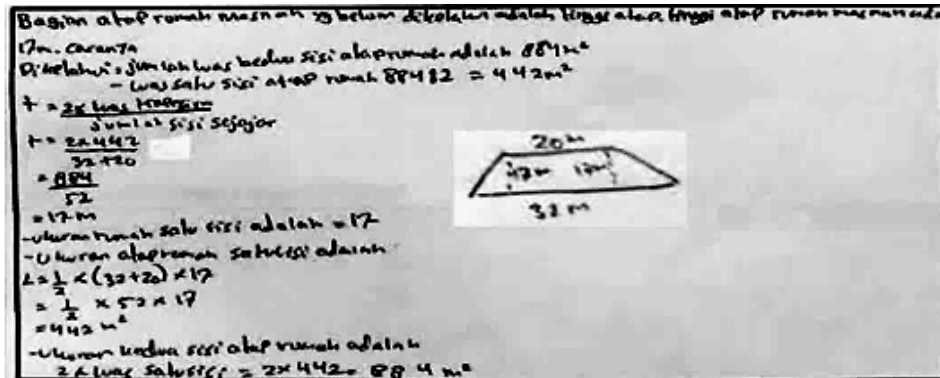 Bagian atap rumah masnah yg belum diketahui adalah tinggi atap, tinggi atap rumah masnah
17m. Caranya
Diketahui = jumlah luas kedua sisi atap rumah adalah 884 m²
- Luas satu sisi atap rumah 884:2 = 442m²
t = 2x Luas trapesium
jumlah sisi sejajar
t = 2x442
32+20
= 884
52
= 17 m
20 m
17m 17m
32 m
-ukuran rumah satu sisi adalah = 17
-Ukuran atap rumah satu sisi adalah
L = 1/2 x (32+20) x 17
= 1/2 x 52 x 17
= 442 m²
-Ukuran kedua sisi atap rumah adalah
2 x luas satu sisi = 2x 442 = 884 m²